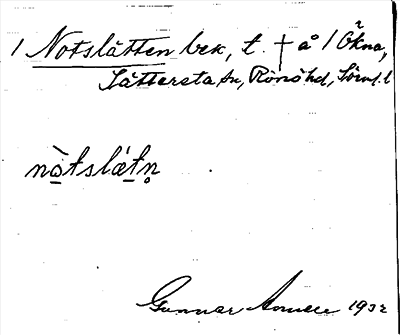 1 Notslåtten bek, t. † å 1 Ökna,
Tättersta sn, Rönö hd, Sörml. l
nòtslǽtn̥
Gunnar 1932